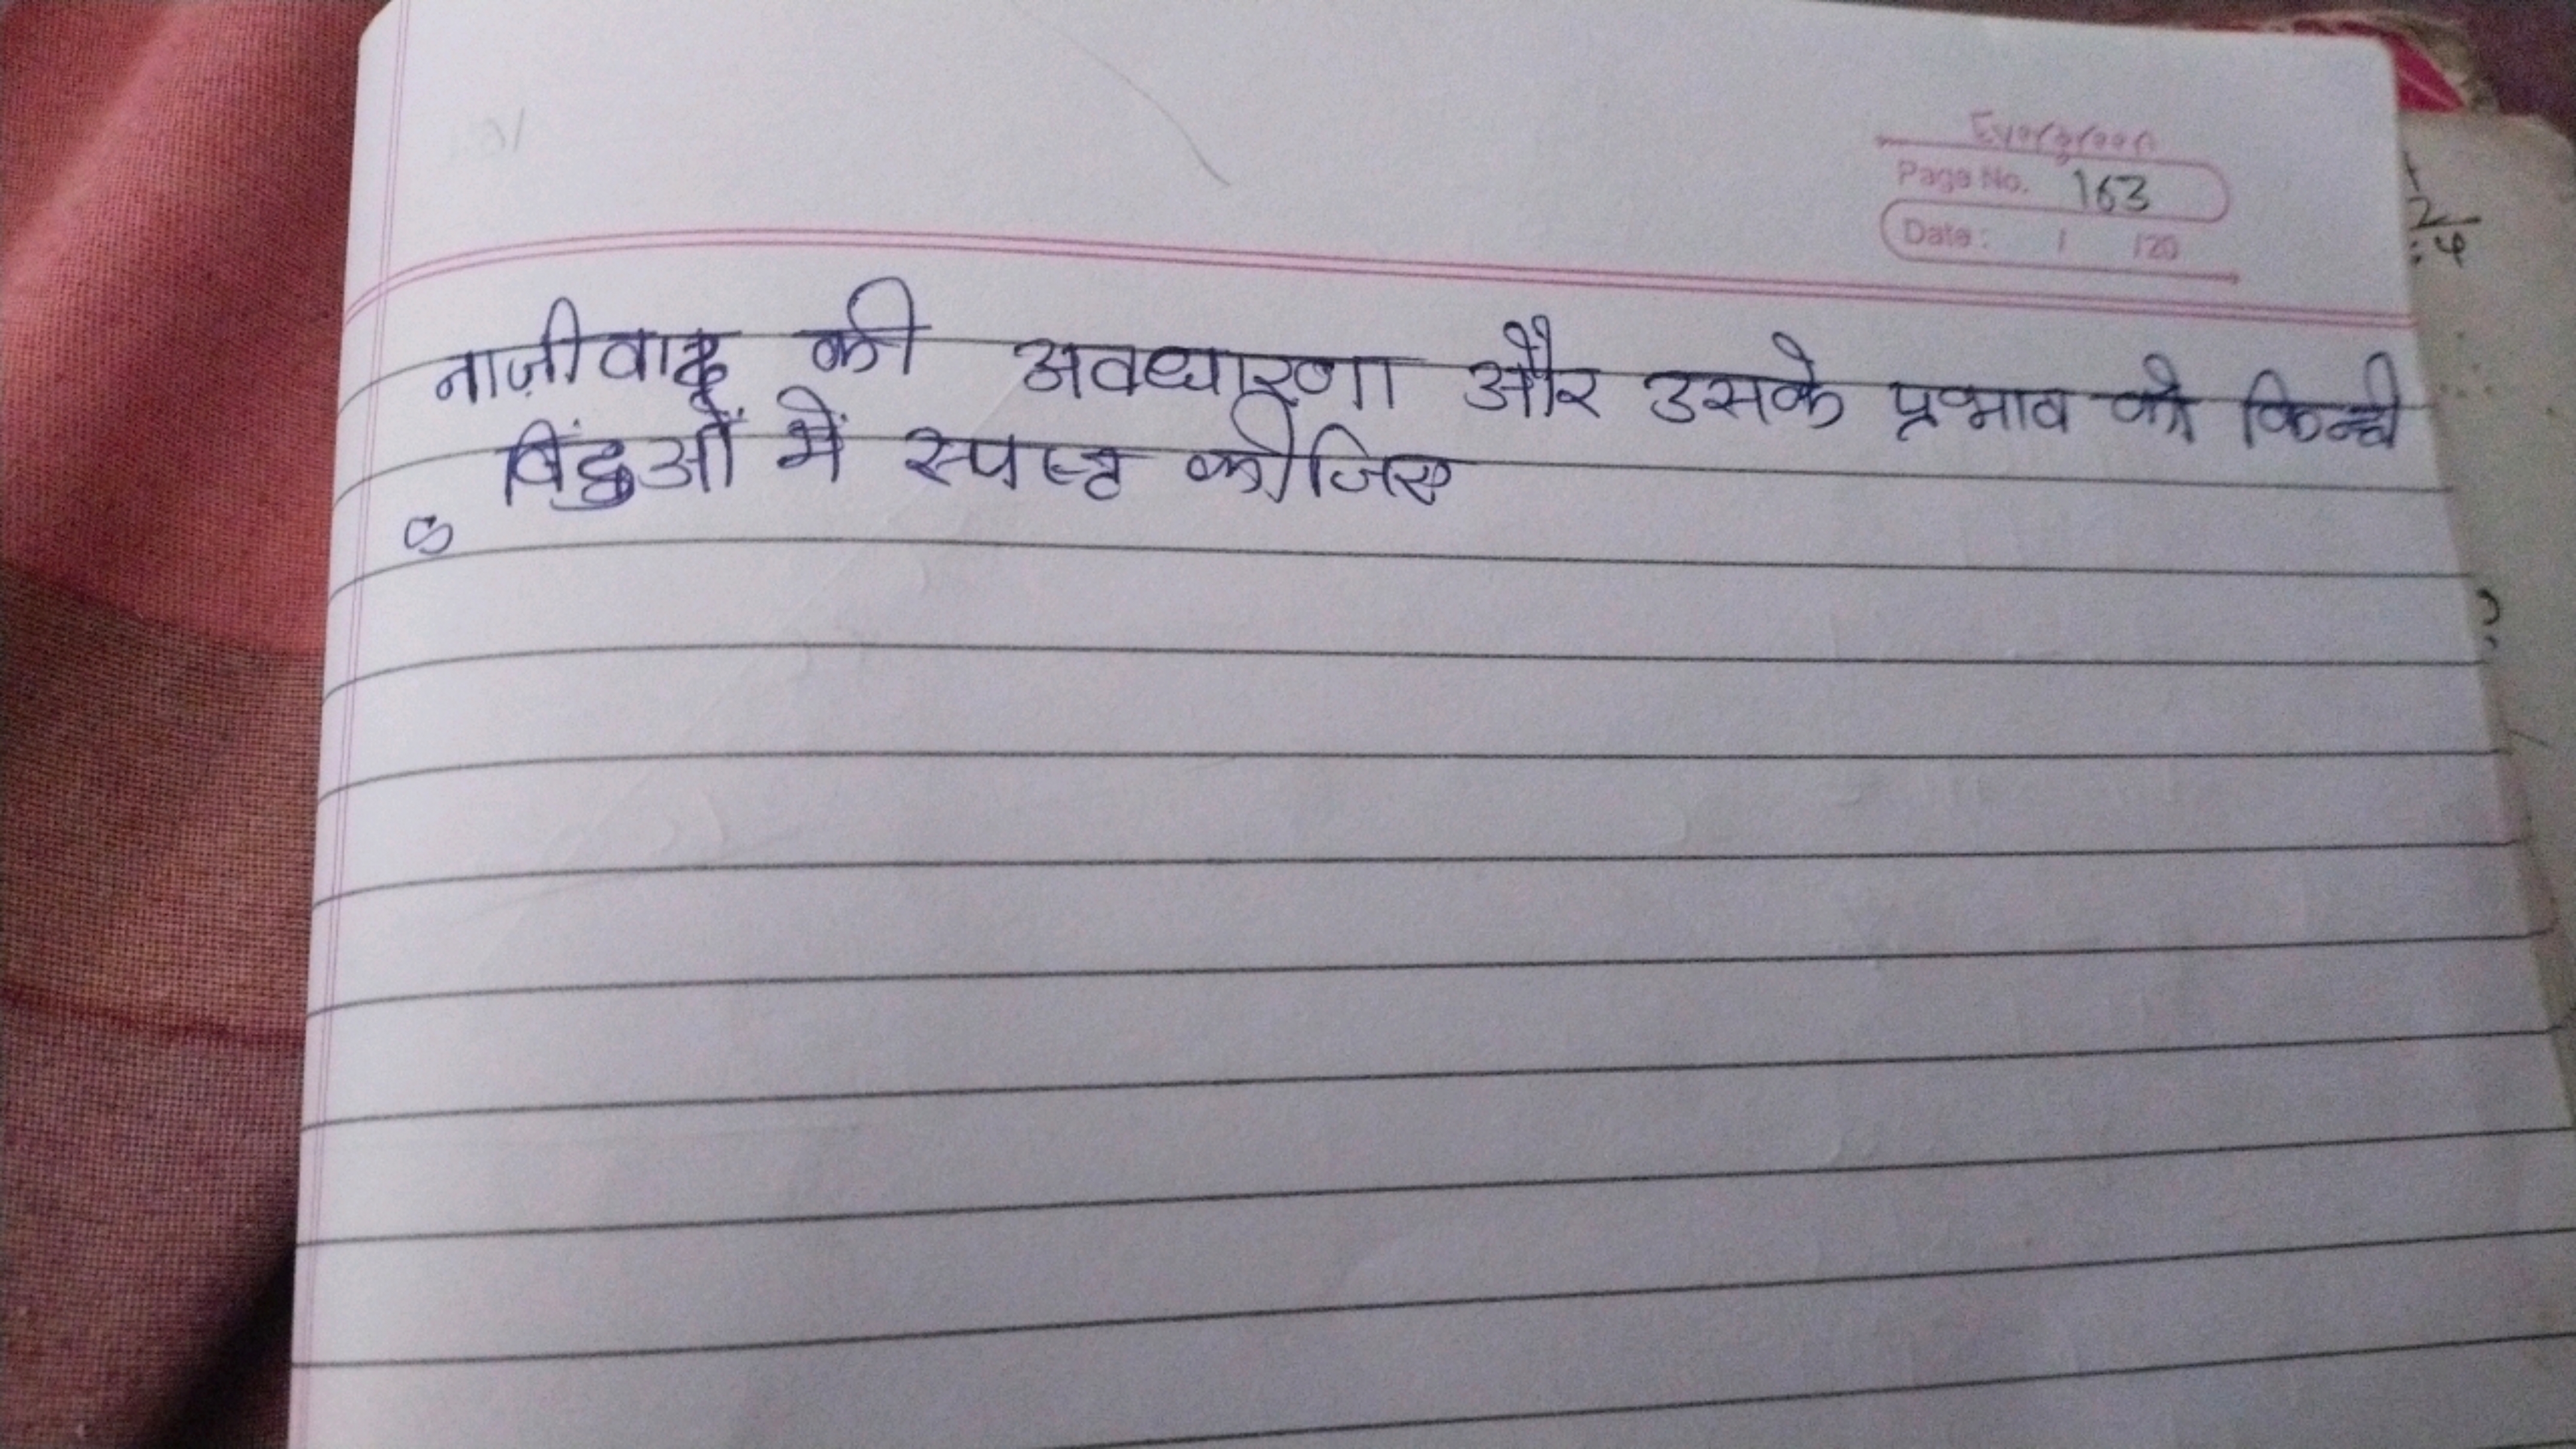 Evergreen
Page No. 163
Date : / /20
नाज़ीवाद की अवधारणा और उसके प्रभाव को किन्ही
बिंदुओं में स्पष्ट कीजिए